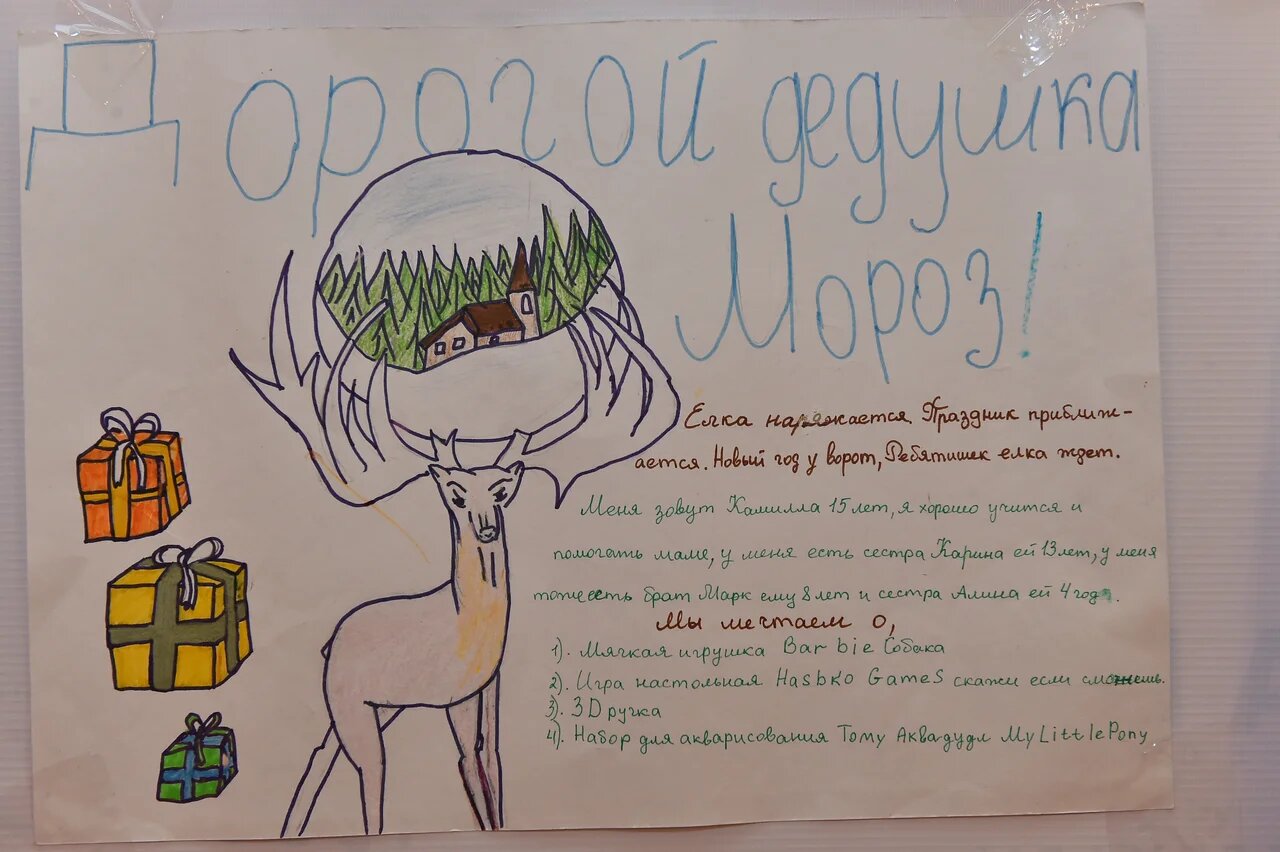 Дорогой дедушка
Мороз!
Елка наряжается. Праздник приближ-
ается. Новый год у ворот, Ребятишек елка ждет.
Меня зовут Камилла 15 лет, я хорошо учится и
помогать маме, у меня есть сестра Карина ей 13 лет, у меня
тоже есть брат Марк ему 8 лет и сестра Алина ей 4 год.
Мы мечтаем о,
1). Мягкая игрушка Barbie Собака
2). Игра настольная Hasbko Games скажи если сможешь.
3). 3D ручка
4). Набор для акварисования Tomy Аквадудл My Little Pony